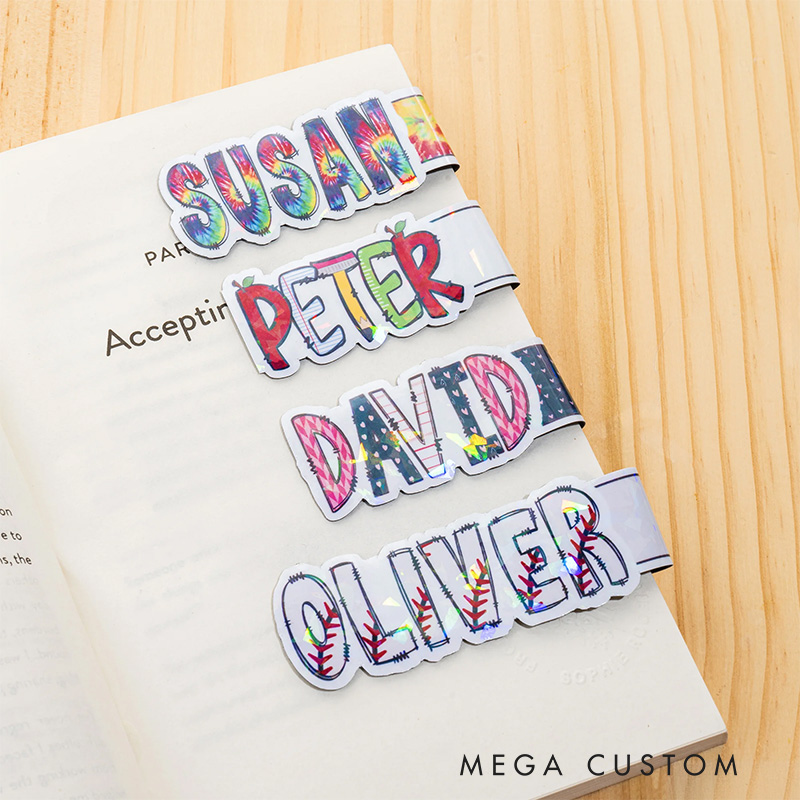 SUSAN
PAR
PETER
Acceptin
DAVID
on
e to
ns, the
OLIVER
MEGA CUSTOM